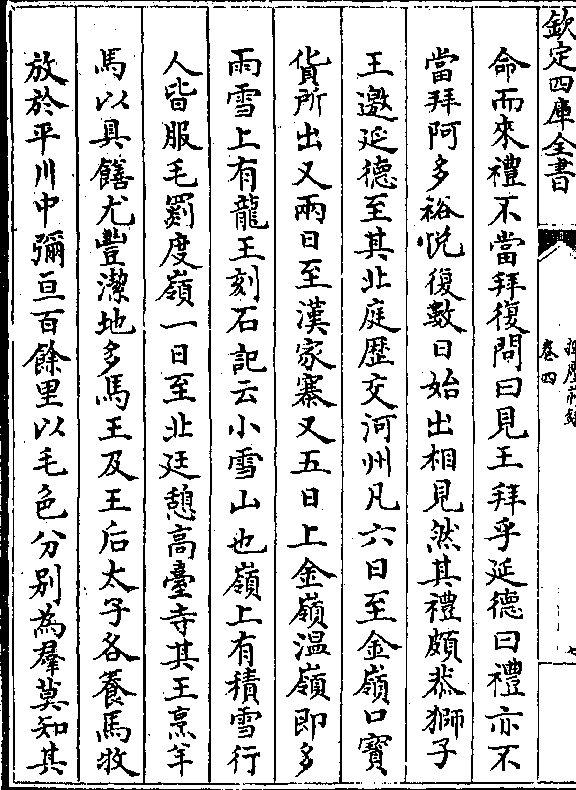 欽定四庫全書
卷四
命而來禮不當拜復問曰見王拜乎延德曰禮亦不
當拜阿多裕悅復數日始出相見然其禮頗恭獅子
王邀延德至其北庭歴交河州凡六日至金嶺口寳
貨所出又兩日至漢家寨又五日上金嶺温嶺即多
雨雪上有龍王刻石記云小雪山也嶺上有積雪行
人皆服毛罽度嶺一日至北廷憩高臺寺其王烹羊
馬以具饍尤豐潔地多馬王及王后太子各養馬牧
放於平川中彌亘百餘里以毛色分別為羣莫知其